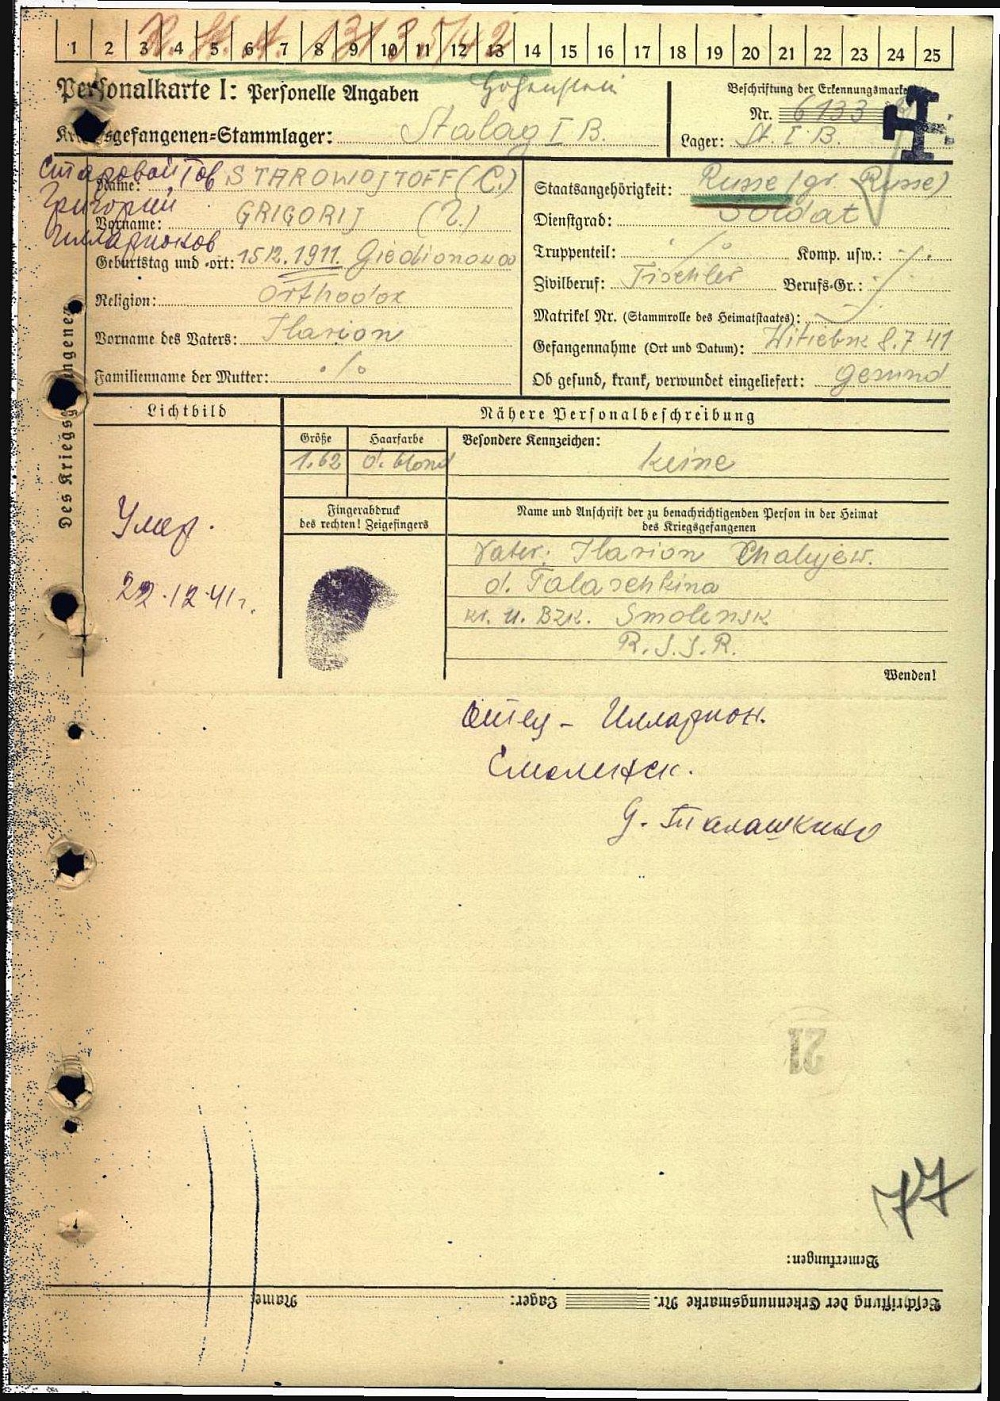 1 2 3 4 5 6 7 8 9 10 11 12 13 14 15 16 17 18 19 20 21 22 23 24 25
Personalkarte I: Personelle Angaben
Hohenstein
Kriegsgefangenen-Stammlager: Stalag I B.
Beschriftung der Erkennungsmarke
Nr. 6133
Lager: St. I B.
Des Kriegsgefangenen
Старовойтов
Григорий
Илларионов
Name: STAROWOJTOFF (С.)
Vorname: GRIGORIJ (Г.)
Geburtstag und -ort: 15.12.1911. Giedionowo
Religion: Orthodox
Vorname des Vaters: Ilarion
Familienname der Mutter: ./.
Staatsangehörigkeit: Russe (gr. Russe)
Dienstgrad: Soldat
Truppenteil: ./. Komp. usw.: ./.
Zivilberuf: Tischler Berufs-Gr.: ./.
Matrikel Nr. (Stammrolle des Heimatstaates): ./.
Gefangennahme (Ort und Datum): Witiebsk 8.7.41
Ob gesund, krank, verwundet eingeliefert: gesund
Lichtbild
Nähere Personalbeschreibung
Größe Haarfarbe Besondere Kennzeichen:
1.62 d. blond keine
Fingerabdruck
des rechten! Zeigefingers
Name und Anschrift der zu benachrichtigenden Person in der Heimat
des Kriegsgefangenen
Умер.
22.12.41г.
Vater: Ilarion
d. Talaschkina
kr. u. Bzk. Smolensk
R.S.S.R.
Wenden!
Отец - Илларион.
Смоленск.
д. Талашкино
21
77
Bemerkungen:
Beschriftung der Erkennungsmarke Nr. Lager: Name